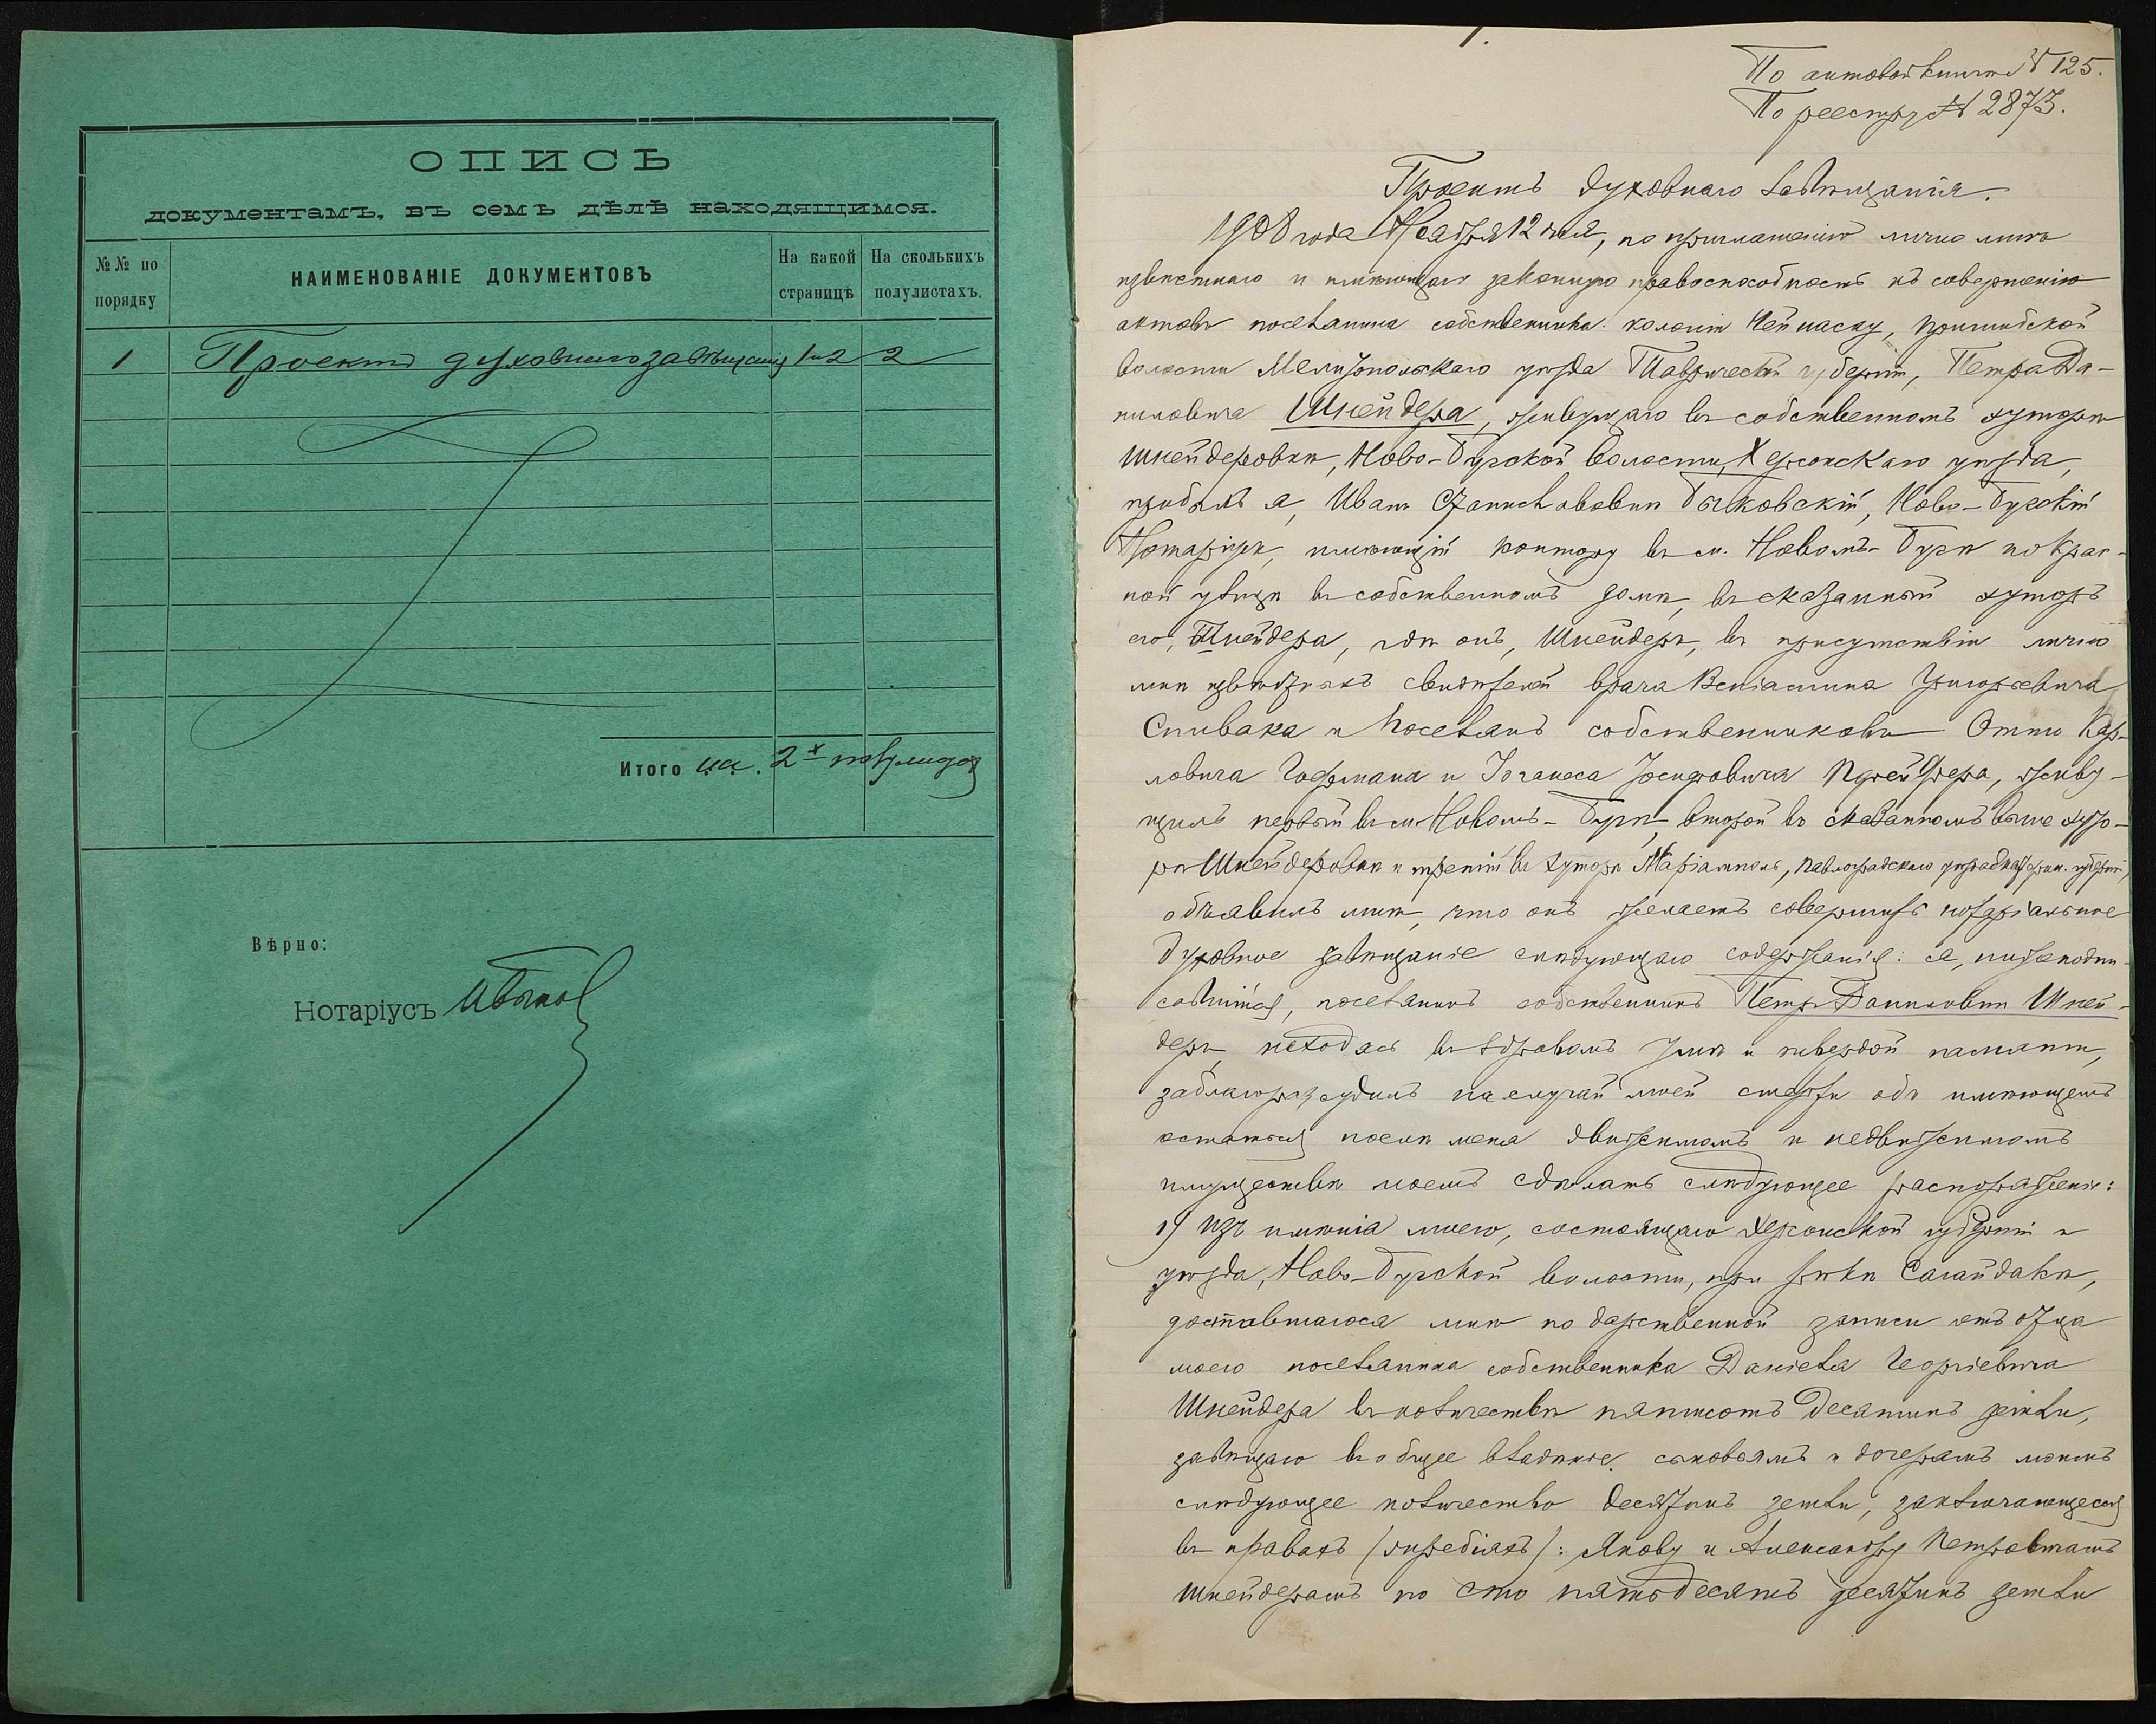 ОПИСЬ
документамъ, въ семъ дѣлѣ находящимся.
№№ по порядку
НАИМЕНОВАНІЕ ДОКУМЕНТОВЪ
На какой страницѣ
На сколькихъ полулистахъ.
1 Проектъ духовнаго завѣщанія 1и2 2
Итого на 2х полулистах
Вѣрно:
Нотаріусъ
1.
По актовой книгѣ № 125.
По реестру № 2873.
Проектъ духовнаго завѣщанія.
1908 года Ноября 12 дня, по приглашенію лично мнѣ
извѣстнаго и имѣющаго законную правоспособность къ совершенію
актовъ поселянина собственника колоніи Нейнасау, Пришибской
волости Мелитопольскаго уѣзда Таврической губерніи, Петра Да-
ниловича Шнейдера, живущаго въ собственномъ хуторѣ
Шнейдеровкѣ, Ново-Бугской волости, Херсонскаго уѣзда,
прибылъ я, Иванъ Станиславовичъ Быковскій, Ново-Бугскій
Нотаріусъ, имѣющій контору въ м. Новомъ-Бугѣ по Крас-
ной улицѣ въ собственномъ домѣ, въ сказанный хуторъ
его, Шнейдера, гдѣ онъ, Шнейдеръ, въ присутствіи лично
мнѣ извѣстныхъ свидѣтелей врача Веніамина Григорьевича
Спивака и поселянъ собственниковъ Отто Кар-
ловича Гофмана и Іоганеса Іосифовича Пфейфера, живу-
щихъ первый въ м. Новомъ-Бугѣ, второй въ сказанномъ выше хуто-
рѣ Шнейдеровкѣ и третій въ хуторѣ Маріамполь, Павлоградскаго уѣзда Екатерин. губерніи,
объявилъ мнѣ, что онъ желаетъ совершить нотаріальное
духовное завѣщаніе слѣдующаго содержанія: я, нижеподпи-
савшійся, поселянинъ собственникъ Петръ Даниловичъ Шней-
деръ, находясь въ здравомъ умѣ и твердой памяти,
заблагоразсудилъ на случай моей смерти объ имѣющемъ
остаться послѣ меня движимомъ и недвижимомъ
имуществѣ моемъ сдѣлать слѣдующее распоряженіе:
1) Изъ имѣнія моего, состоящаго Херсонской губерніи и
уѣзда, Ново-Бугской волости, при рѣкѣ Сагайдакѣ,
доставшагося мнѣ по дарственной записи отъ отца
моего поселянина собственника Даніеля Георгіевича
Шнейдера въ количествѣ пятисотъ десятинъ земли,
завѣщаю въ общее владѣніе сыновьямъ и дочерямъ моимъ
слѣдующее количество десятинъ земли, заключающееся
въ правахъ (жребіяхъ): Якову и Александру Петровичамъ
Шнейдерамъ по сто пятьдесятъ десятинъ земли